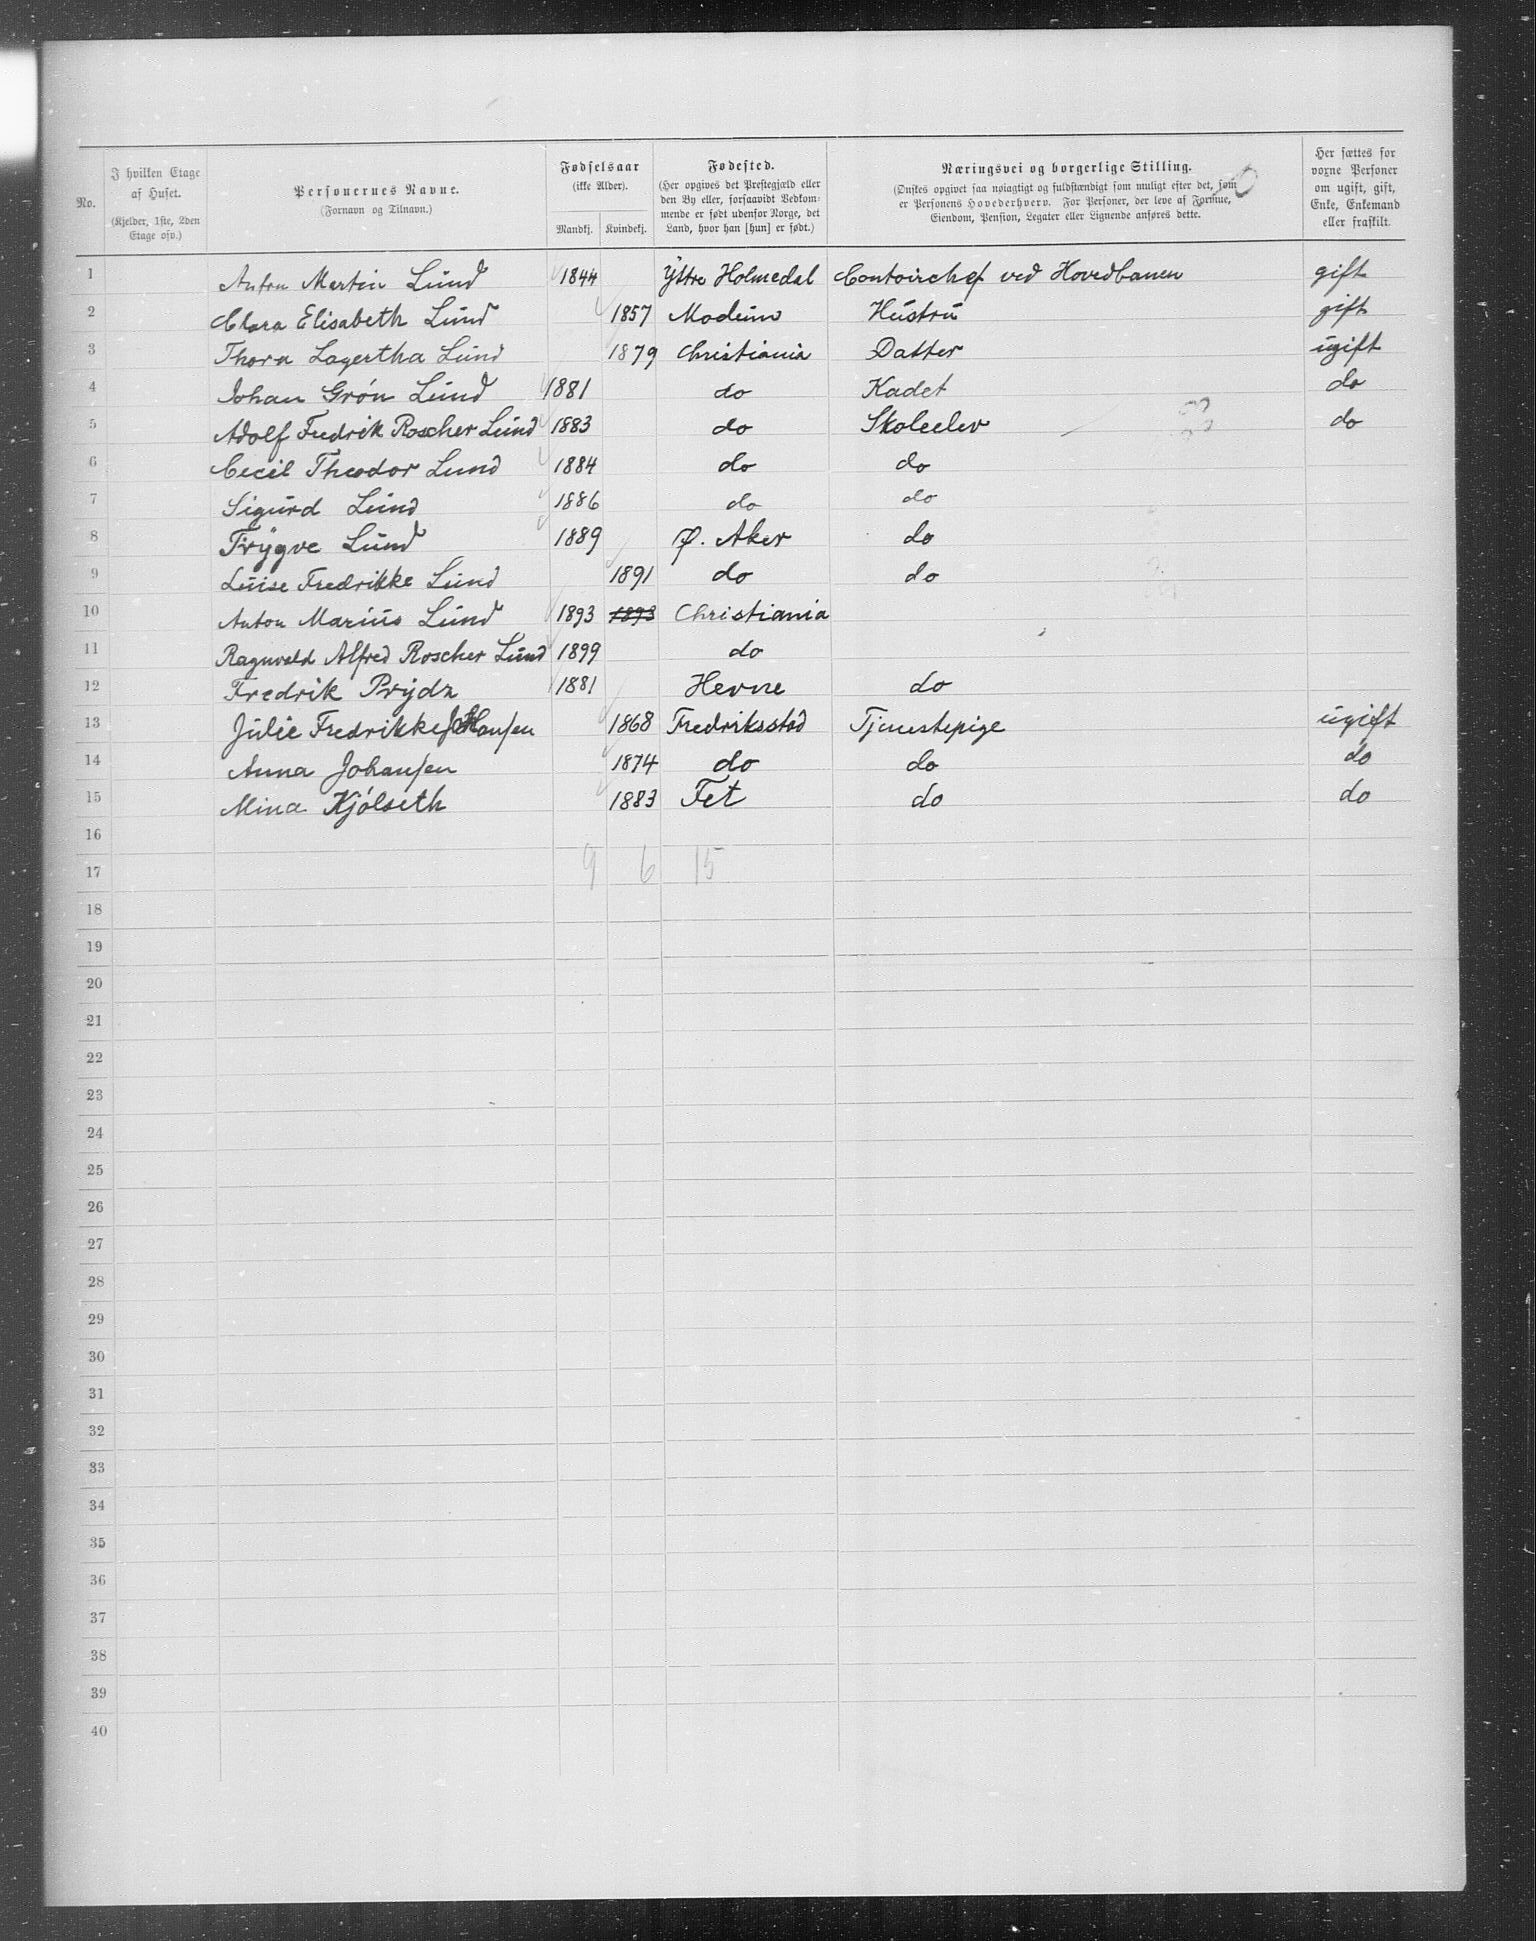 No. | I hvilken Etage af Huset. (Kjelder, 1ste, 2den Etage osv.) | Personernes Navne. (Fornavn og Tilnavn.) | Fødselsaar (ikke Alder). Mandkj. | Kvindekj. | Fødested. (Her opgives det Præstegjæld eller den By eller, forsaavidt Vedkommende er født udenfor Norge, det Land, hvor han [hun] er født.) | Næringsvei og borgerlige Stilling. (Ønskes opgivet saa nøiagtigt og fuldstændigt som muligt efter det, som er Personens Hovederhverv. For Personer, der leve af Formue, Eiendom, Pension, Legater eller Lignende anføres dette. | Her sættes for voxne Personer om ugift, gift, Enke, Enkemand eller fraskilt.
1 Anton Martin Lund 1844 Yttre Holmedal Contoirchef ved Hovedbanen gift
2 Clara Elisabeth Lund 1857 Modum Hustru gift
3 Thora Lagertha Lund 1879 Christiania Datter ugift
4 Johan Grøn Lund 1881 do Kadet do
5 Adolf Fredrik Roscher Lund 1883 do Skoleelev do
6 Cecil Theodor Lund 1884 do do
7 Sigurd Lund 1886 do do
8 Trygve Lund 1889 Ø. Aker do
9 Luise Fredrikke Lund 1891 do do
10 Anton Marius Lund 1893 1893 Christiania
11 Ragnvald Alfred Roscher Lund 1899 do
12 Fredrik Prydz 1881 Hevne do
13 Julie Fredrikke Hansen 1868 Fredriksstad Tjenestepige ugift
14 Anna Johansen 1874 do do do
15 Mina Kjölseth 1883 Fet do do
16
17 9 6 15
18
19
20
21
22
23
24
25
26
27
28
29
30
31
32
33
34
35
36
37
38
39
40